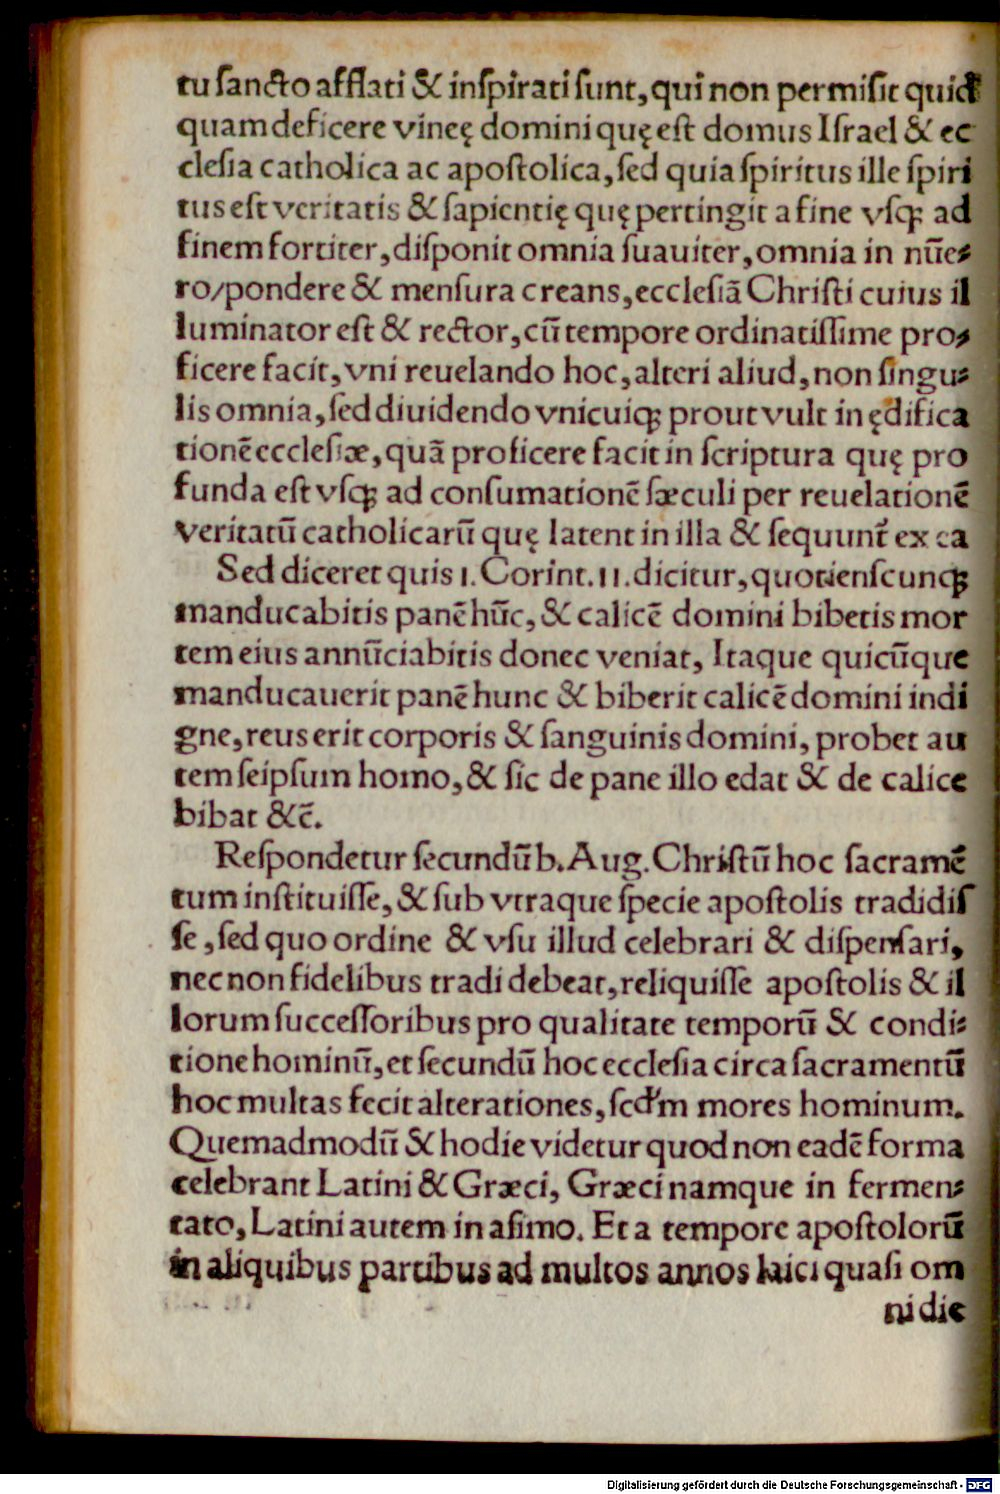 tu ſancto afflati & inſpirati ſunt, qui non permiſit quid
quam deficere vineę domini quę eſt domus Iſrael & ec
cleſia catholica ac apoſtolica, ſed quia ſpiritus ille ſpiri
tus eſt veritatis & ſapientię quę pertingit a fine vſqꝫ ad
finem fortiter, diſponit omnia ſuauiter, omnia in nūe⸗
ro/pondere & menſura creans, eccleſiā Chriſti cuius il
luminator eſt & rector, cū tempore ordinatiſſime pro⸗
ficere facit, vni reuelando hoc, alteri aliud, non ſingu⸗
lis omnia, ſed diuidendo vnicuiqꝫ prout vult in ędifica
tionē eccleſiæ, quā proficere facit in ſcriptura quę pro
funda eſt vſqꝫ ad conſumationē ſæculi per reuelationē
veritatū catholicarū quę latent in illa & ſequunt̄ ex ea
Sed diceret quis 1. Corint. 11. dicitur, quotienſcunqꝫ
manducabitis panē hūc, & calicē domini bibetis mor
tem eius annūciabitis donec veniat, Itaque quicūque
manducauerit panē hunc & biberit calicē domini indi
gne, reus erit corporis & ſanguinis domini, probet au
tem ſeipſum homo, & ſic de pane illo edat & de calice
bibat &c̄.
Reſpondetur ſecundū b. Aug. Chriſtū hoc ſacramē
tum inſtituiſſe, & ſub vtraque ſpecie apoſtolis tradidiſ
ſe, ſed quo ordine & vſu illud celebrari & diſpenſari,
nec non fidelibus tradi debeat, reliquiſſe apoſtolis & il
lorum ſucceſſoribus pro qualitate temporū & condi⸗
tione hominū, et ſecundū hoc eccleſia circa ſacramentū
hoc multas fecit alterationes, ſcd'm mores hominum.
Quemadmodū & hodie videtur quod non eadē forma
celebrant Latini & Græci, Græci namque in fermen⸗
tato, Latini autem in aſimo. Et a tempore apoſtolorū
in aliquibus partibus ad multos annos laici quaſi om
ni die
Digitalisierung gefördert durch die Deutsche Forschungsgemeinschaft - DFG